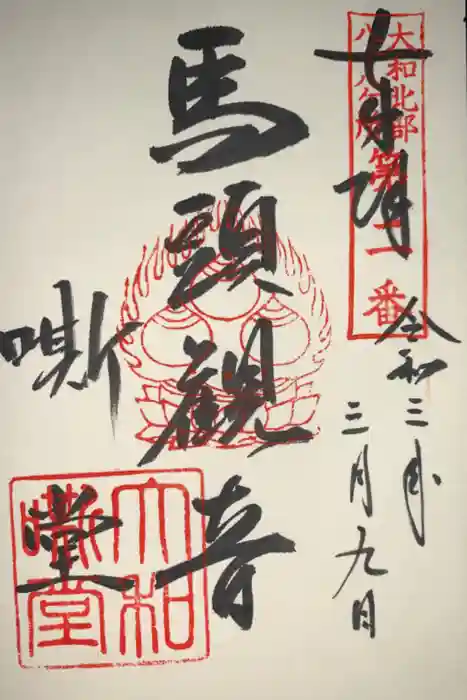 奉拝
大和北部
八十八ヶ所
第二番
令和三年
三月九日
馬頭觀音
嘶堂
大和
嘶堂